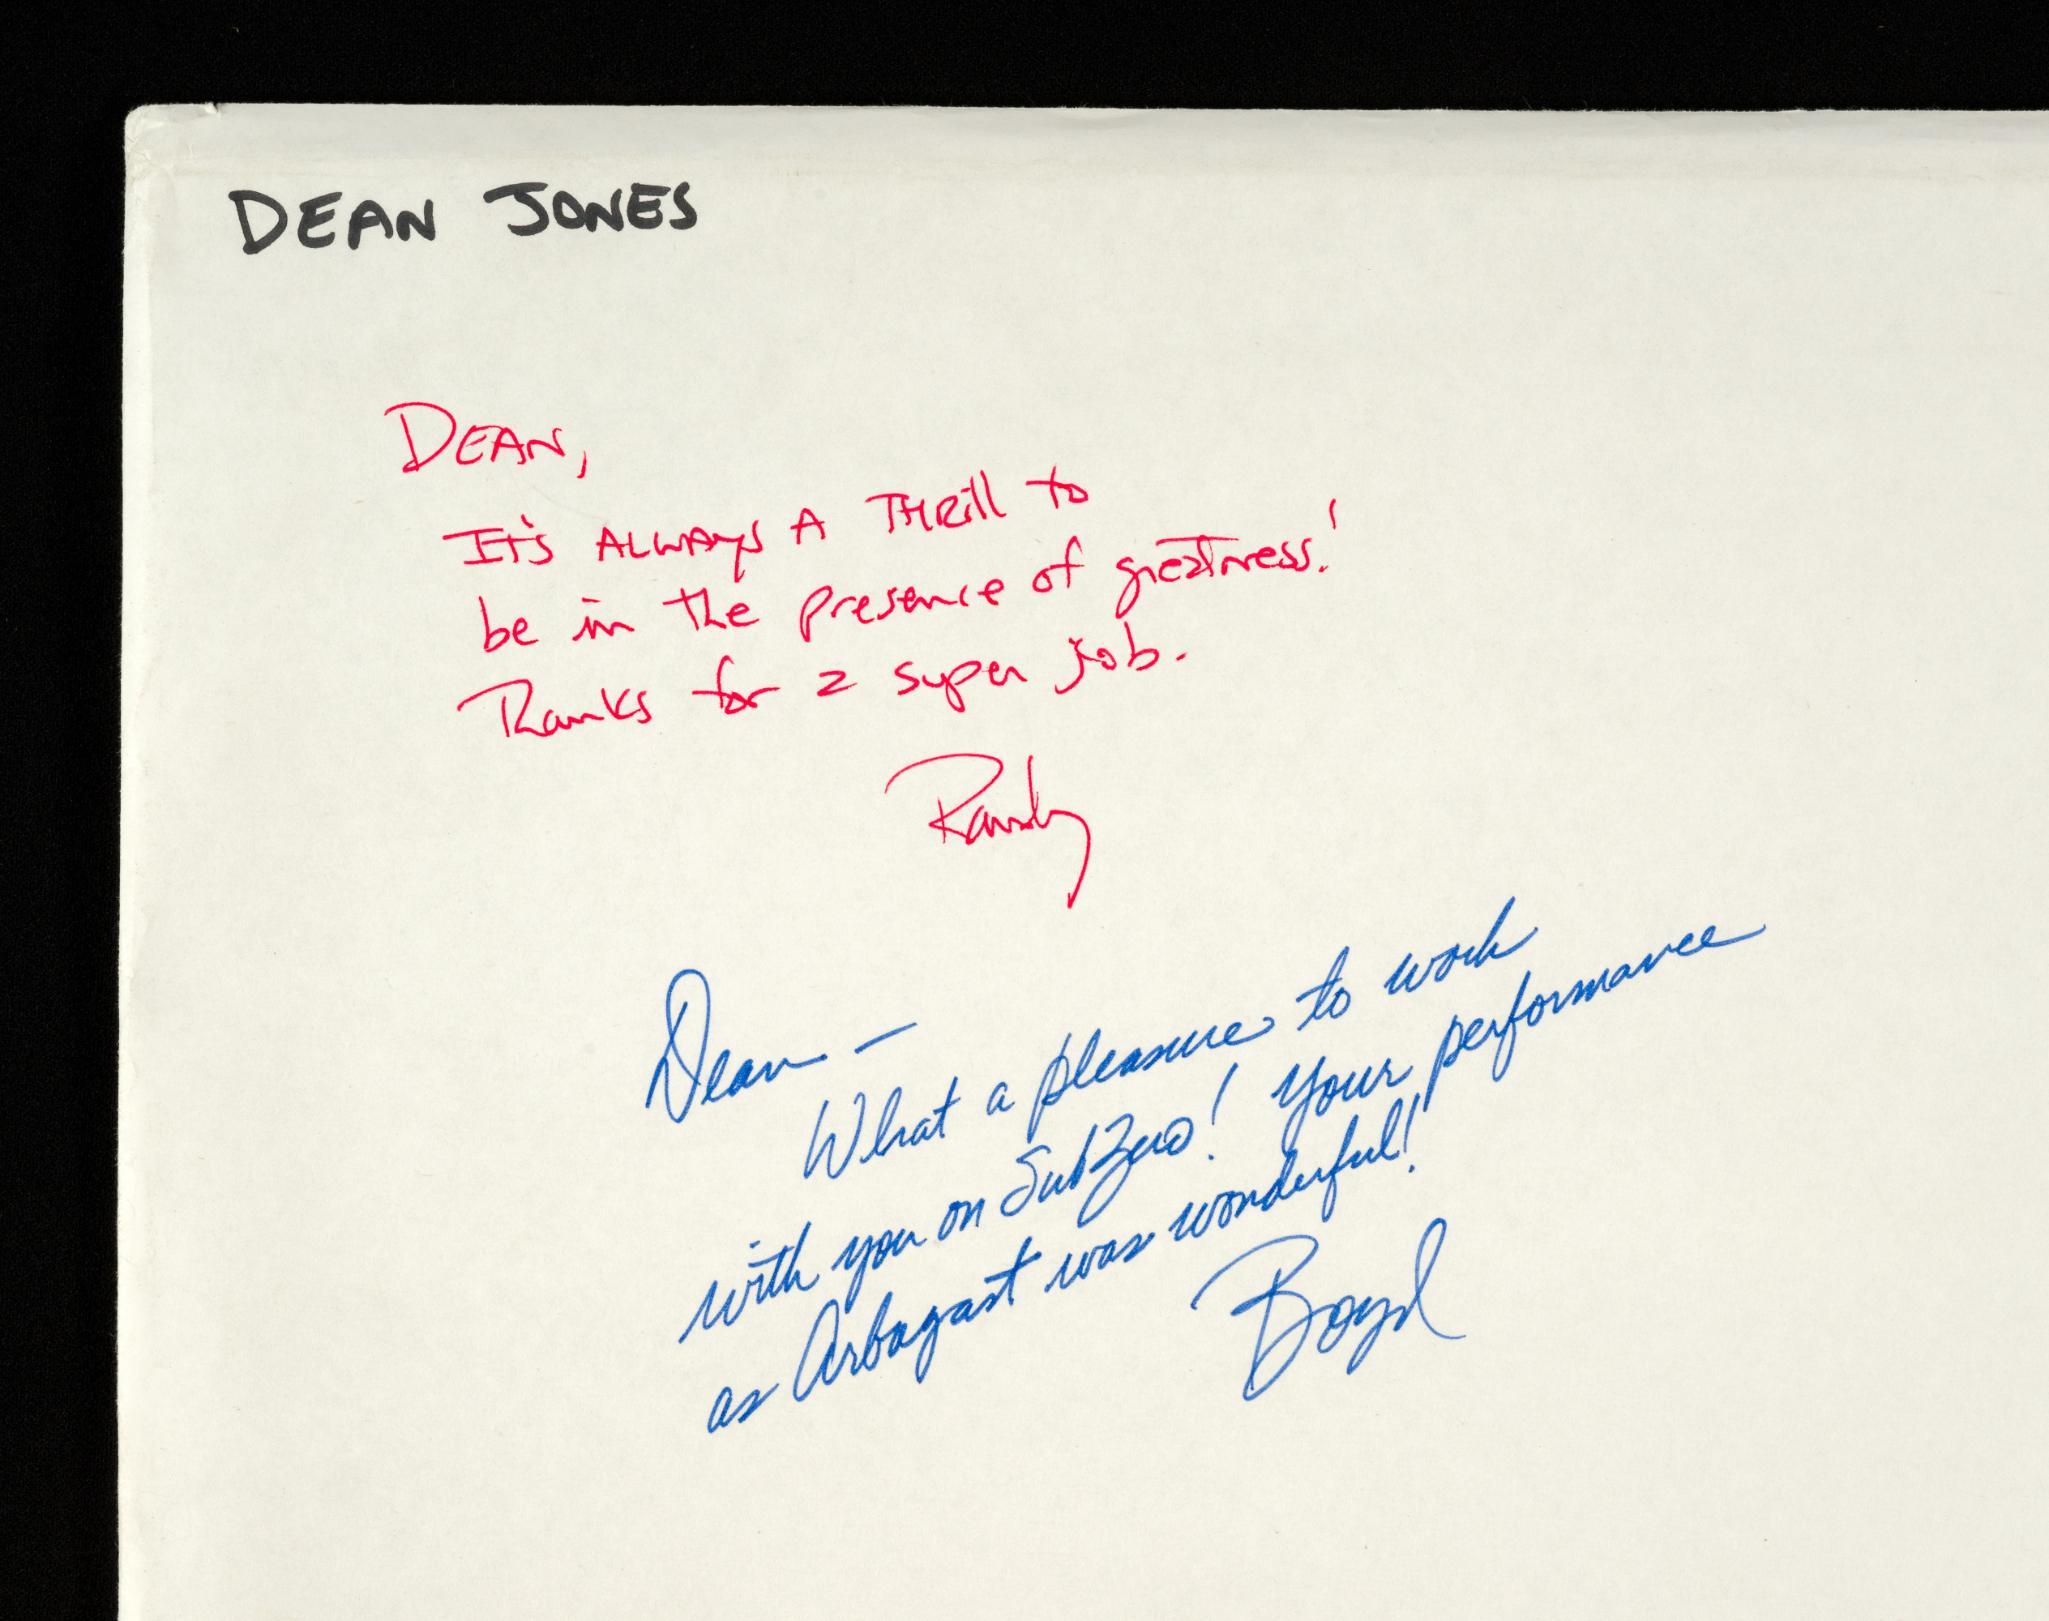 DEAN JONES
DEAN,
It's ALWAYS A THRill to
be in the presence of greatness!
Thanks for a super job.
Randy
Dean –
What a pleasure to work
with you on SubZero! Your performance
as Arbogast was wonderful!
Boyd